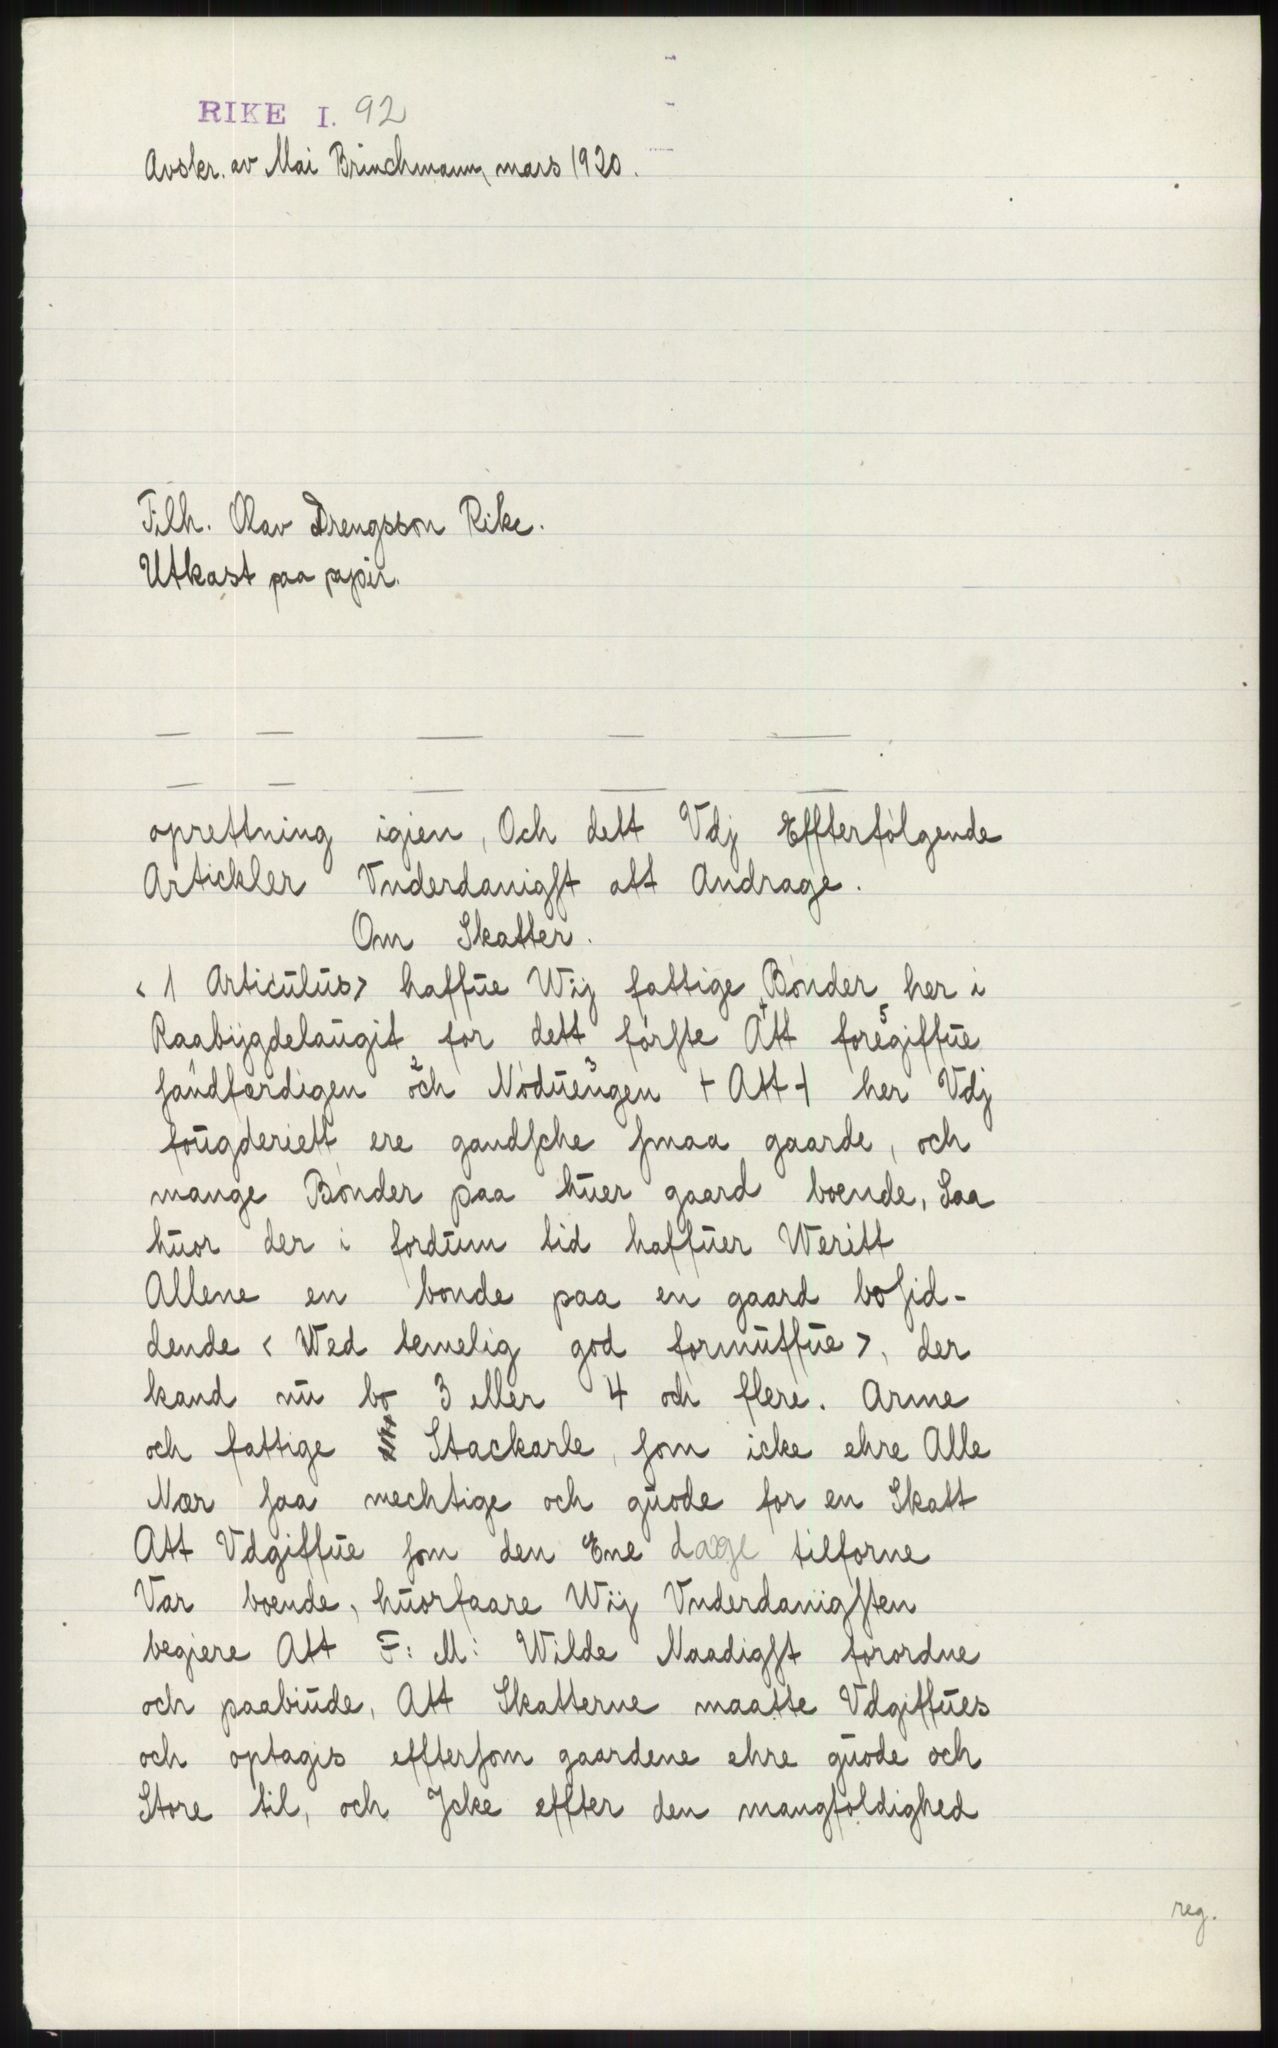 RIKE I. 92
Avskr. av Mai Brinchmann, mars 1920.
Tilh. Olav Drengsson Rike.
Utkast paa papir.
oprettning igien, Och dett Vdj Effterfølgende
Artickler Vnderdanigſt att Andrage.
Om Skatter.
< 1 Articŭlŭs> haffŭe Wij fattige Bønder her i
Raabijgdelaŭgit for dett førſte Att foregiffŭe
ſandfærdigen och Nødŭengen + Att + her Vdj
foŭgderiett ere gandſche ſmaa gaarde, och
mange Bønder paa hŭer gaard boende, Saa
hŭor der i fordŭm tid haffŭer Weritt
Allene en bonde paa en gaard boſid-
dende < Wed temelig god formŭffŭe >, der
kand nŭ bo 3 eller 4 och flere. Arme
och fattige Stackarle, ſom icke ehre Alle
Nær ſaa mechtige och gŭode for en Skatt
Att Vdgiffŭe ſom den Ene tilforne
Var boende, hŭorfaare Wij Vnderdanigſten
begiere Att F: M: Wilde Naadigſt forordne
och paabiŭde, Att Skatterne maatte Vdgiffŭes
och optagis effterſom gaardene ehre gŭode och
Store til, och Jcke effter den mangfoldighed
reg.